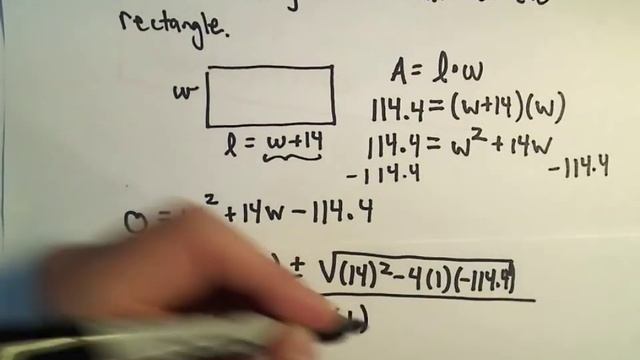 rectangle.
w
l = w+14
A = l·w
114.4 = (w+14)(w)
114.4 = w² + 14w
-114.4 -114.4
0 = ² + 14w - 114.4
) ± √(14)² - 4(1)(-114.4)